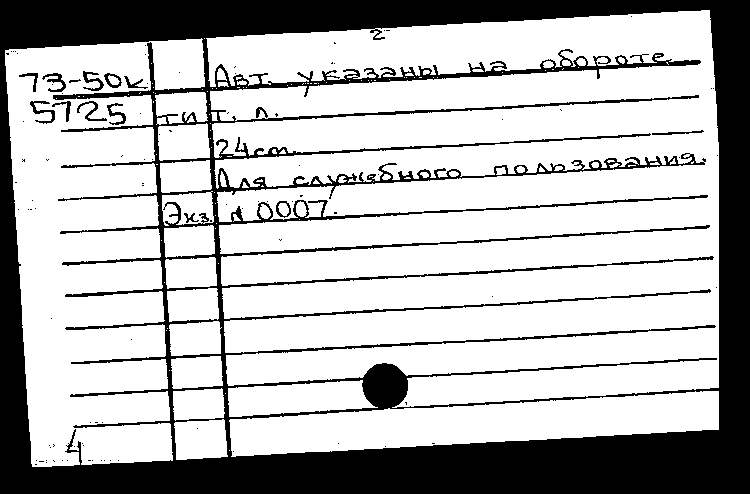 2
73-50к Авт. указаны на обороте
5725 тит. л.
24 см.
Для служебного пользования.
Экз. № 0007.
4